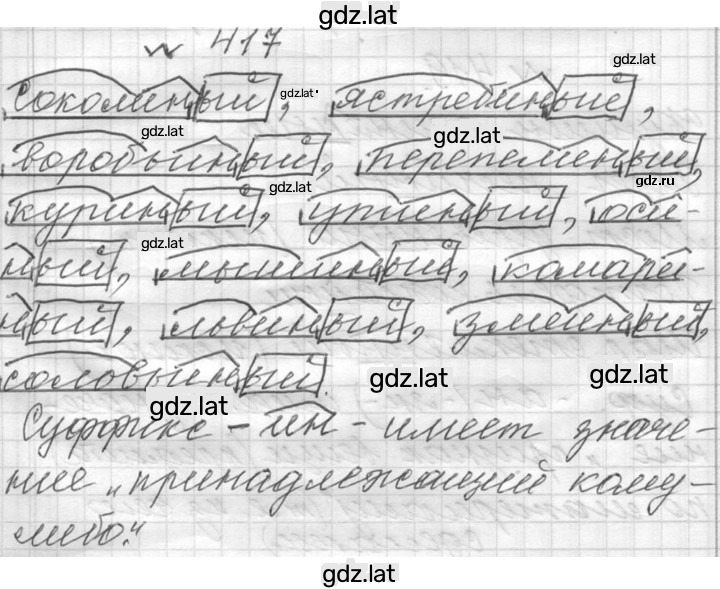 gdz.lat
№ 417
gdz.lat
соколиный, gdz.lat ястребиный,
gdz.lat gdz.lat
воробьиный, перепелиный,
gdz.lat gdz.ru
куриный, утиный, оси-
gdz.lat
ный, мышиный, комари-
ный, львиный, змеиный,
соловьиный.
gdz.lat gdz.lat gdz.lat
Суффикс -ин- имеет значе-
ние „принадлежащий кому-
либо."
gdz.lat